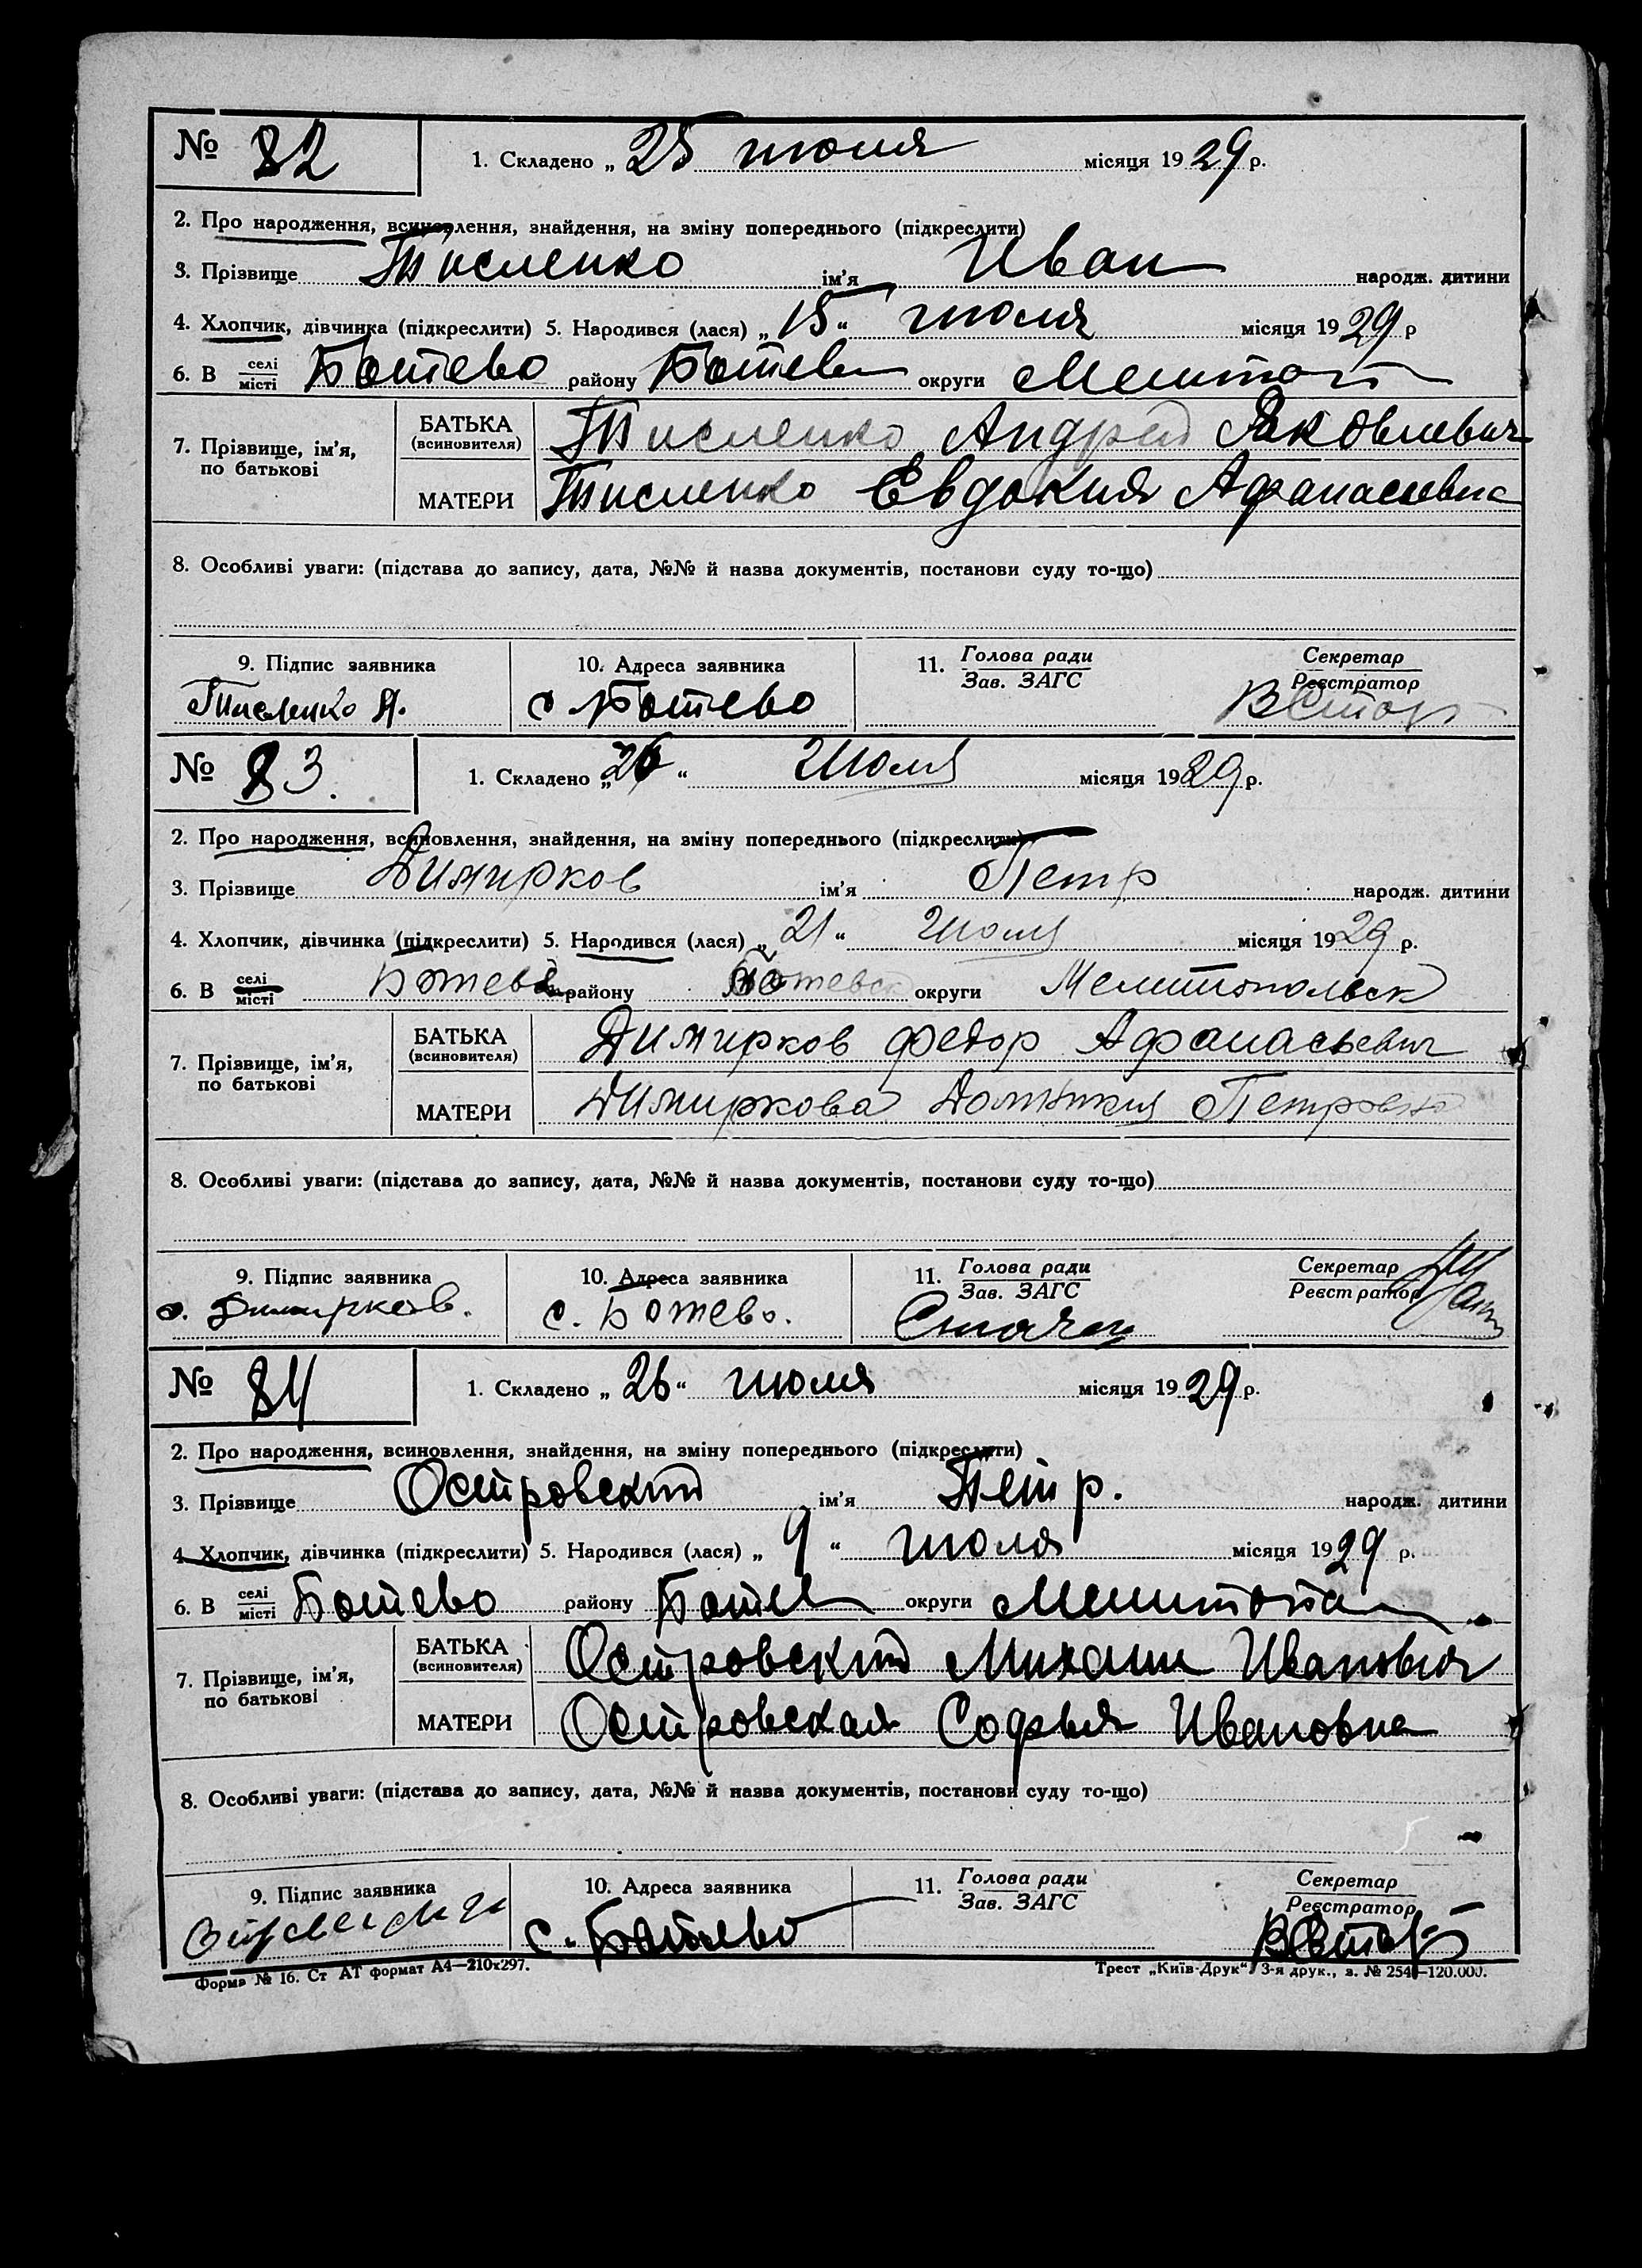 № 82 1. Складено „ 25 июля місяця 1929 р.
2. Про народження, всиновлення, знайдення, на зміну попереднього (підкреслити)
3. Прізвище Тисленко ім'я Иван народж. дитини
4. Хлопчик, дівчинка (підкреслити) 5. Народився (лася) „ 15 “ июля місяця 1929 р
6. В селі місті Ботево району Ботев округи Мелитоп
7. Прізвище, ім'я, по батькові БАТЬКА (всиновителя) Тисленко Андрей Яковлевич
МАТЕРИ Тисленко Евдокия Афанасьевна
8. Особливі уваги: (підстава до запису, дата, №№ й назва документів, постанови суду то-що)
9. Підпис заявника 10. Адреса заявника 11. Голова ради Зав. ЗАГС Секретар Реєстратор
Тисленко А. с Ботево
№ 83. 1. Складено „ 26 “ Июля місяця 1929 р.
2. Про народження, всиновлення, знайдення, на зміну попереднього (підкреслити)
3. Прізвище Димирков ім'я Петр народж. дитини
4. Хлопчик, дівчинка (підкреслити) 5. Народився (лася) „ 21 “ Июля місяця 1929 р.
6. В селі місті Ботево району Ботевск округи Мелитопольск
7. Прізвище, ім'я, по батькові БАТЬКА (всиновителя) Димирков Федор Афанасьевич
МАТЕРИ Димиркова Петровна
8. Особливі уваги: (підстава до запису, дата, №№ й назва документів, постанови суду то-що)
9. Підпис заявника 10. Адреса заявника 11. Голова ради Зав. ЗАГС Секретар Реєстратор
Димирков. с. Ботево.
№ 84 1. Складено „ 26 “ июля місяця 1929 р.
2. Про народження, всиновлення, знайдення, на зміну попереднього (підкреслити)
3. Прізвище Островский ім'я Петр. народж. дитини
4. Хлопчик, дівчинка (підкреслити) 5. Народився (лася) „ 9 “ июля місяця 1929 р.
6. В селі місті Ботево району Ботев округи Мелитопол
7. Прізвище, ім'я, по батькові БАТЬКА (всиновителя) Островский Михаил Иванович
МАТЕРИ Островская Софья Ивановна
8. Особливі уваги: (підстава до запису, дата, №№ й назва документів, постанови суду то-що)
9. Підпис заявника 10. Адреса заявника 11. Голова ради Зав. ЗАГС Секретар Реєстратор
с. Ботево
Форма № 16. Ст АТ формат А4—210х297. Трест „Київ-Друк“ 3-я друк., з. № 254 —120.000.